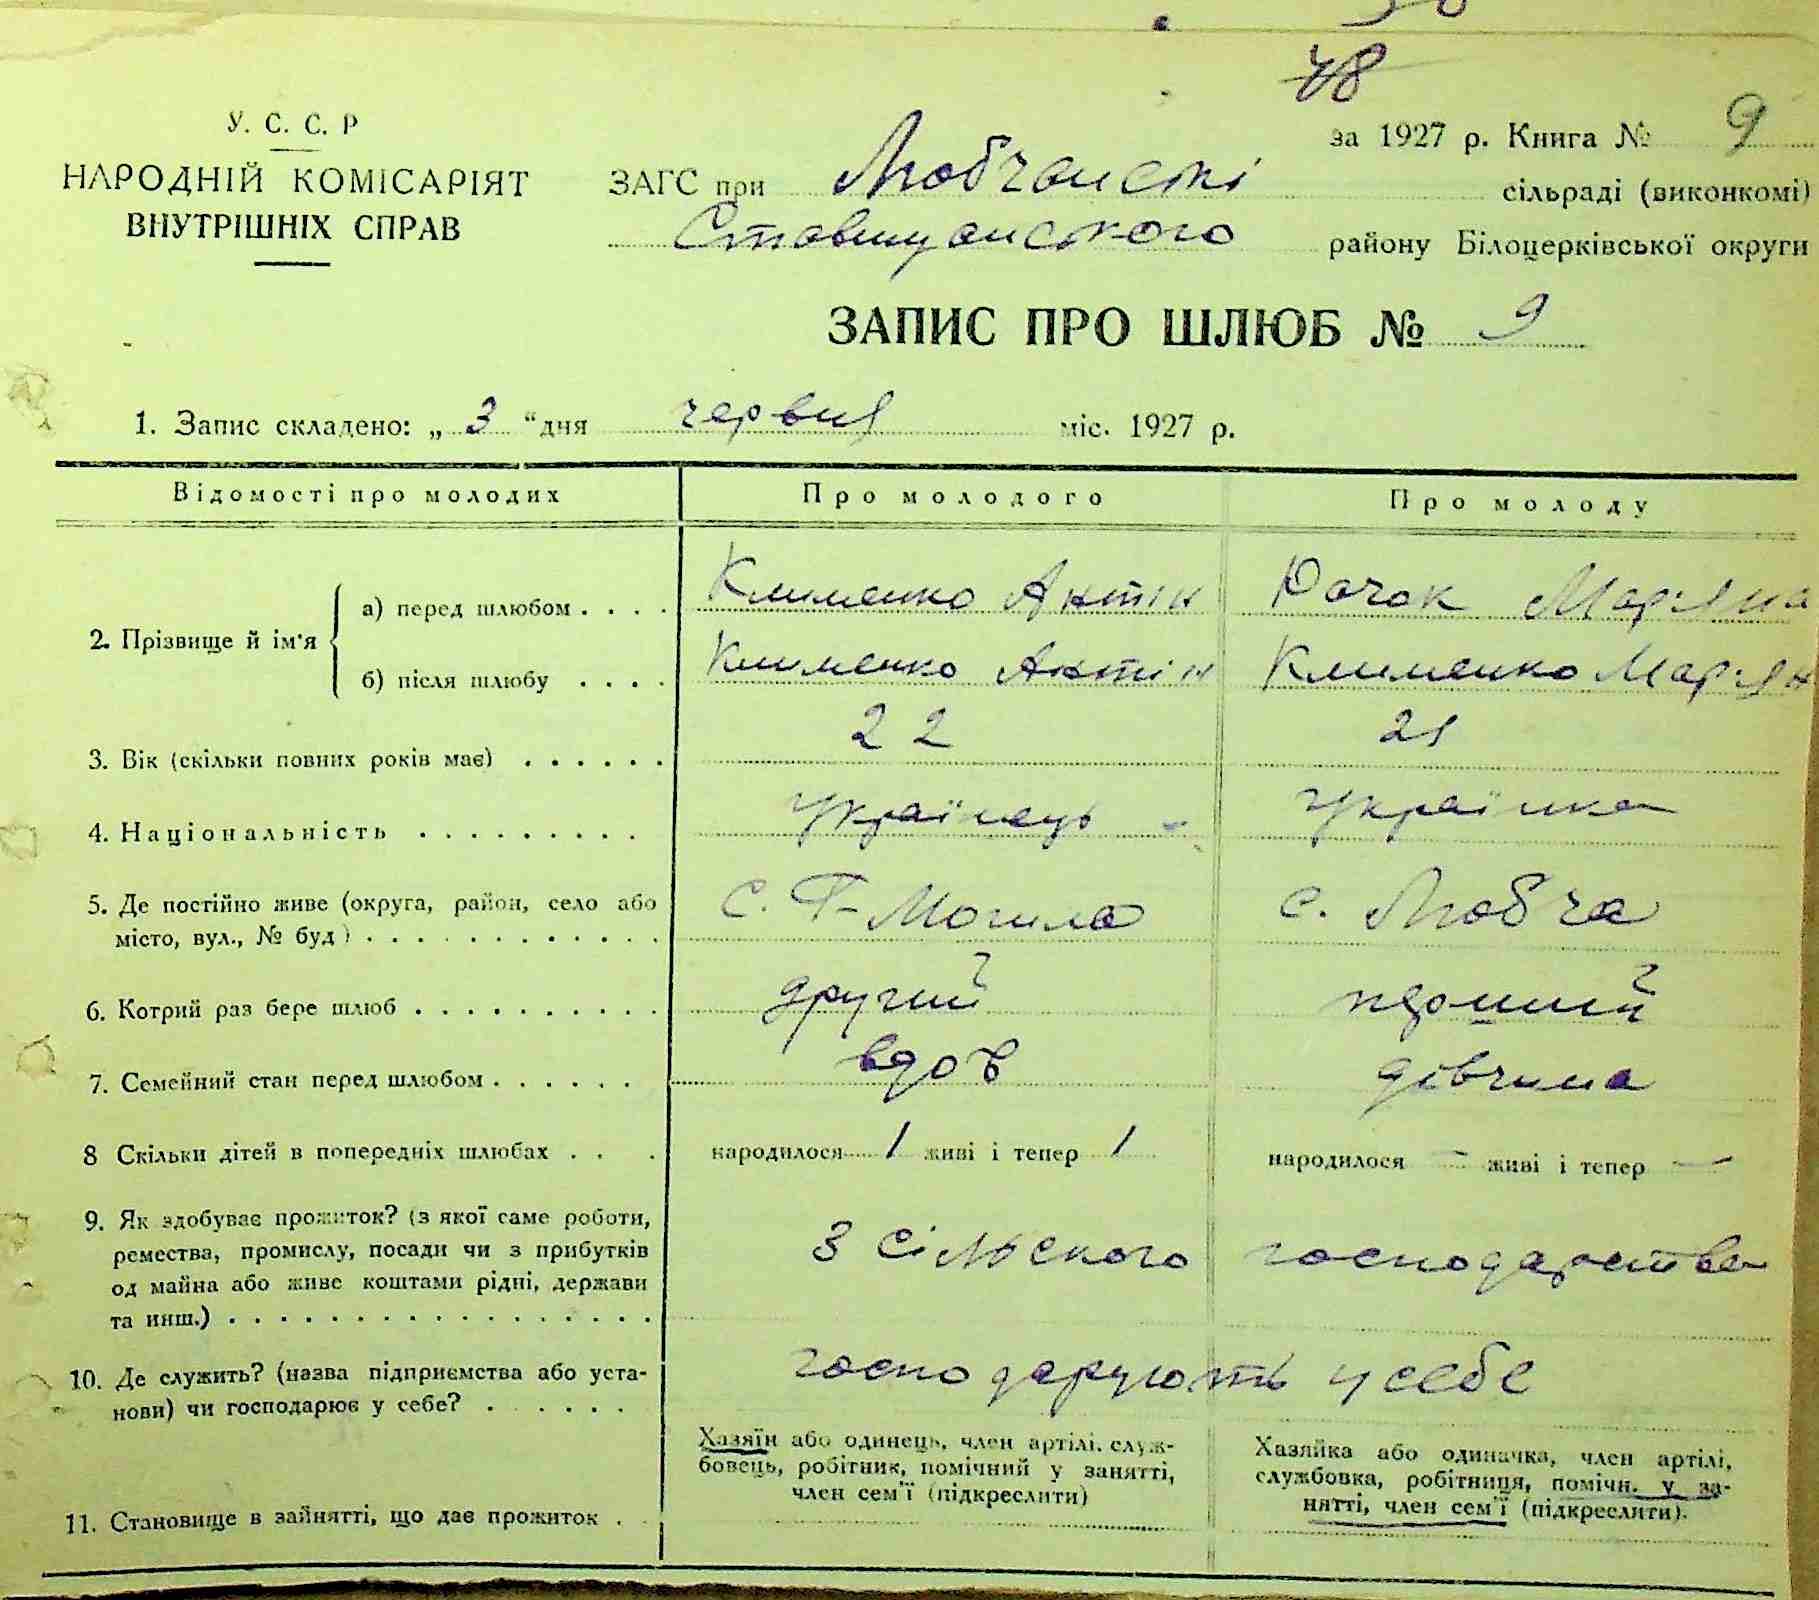 48
У. С. С. Р
за 1927 р. Книга № 9
НАРОДНІЙ КОМІСАРІЯТ
ЗАГС при Любчанскі сільраді (виконкомі)
ВНУТРІШНІХ СПРАВ
Ставищанського району Білоцерківської округи
ЗАПИС ПРО ШЛЮБ № 9
1. Запис складено: „ 3 “ дня червня міс. 1927 р.
Відомості про молодих
Про молодого
Про молоду
2. Прізвище й ім'я
а) перед шлюбом . . . .
Клименко Антін
Юачок Мар'яна
б) після шлюбу . . . .
Клименко Антін
Клименко Мар'ян
3. Вік (скільки повних років має) . . . . . .
22
21
4. Національність . . . . . . . . .
Українець
Українка
5. Де постійно живе (округа, район, село або
місто, вул., № буд) . . . . . . . . . . . . .
С. Г-Могила
с. Любча
6. Котрий раз бере шлюб . . . . . . . . . .
другий
перший
7. Семейний стан перед шлюбом . . . . . .
вдов
дівчина
8 Скільки дітей в попередніх шлюбах . . .
народилося 1 живі і тепер 1
народилося - живі і тепер -
9. Як здобуває прожиток? (з якої саме роботи,
ремества, промислу, посади чи з прибутків
од майна або живе коштами рідні, держави
та инш.) . . . . . . . . . . . . . . . . .
З сільского господарства
10. Де служить? (назва підприємства або уста-
нови) чи господарює у себе? . . . . . .
господарують у себе
11. Становище в зайнятті, що дає прожиток .
Хазяїн або одинець, член артілі, служ-
бовець, робітник, помічний у занятті,
член сем'ї (підкреслити)
Хазяйка або одиначка, член артілі,
службовка, робітниця, помічн. у за-
нятті, член сем'ї (підкреслити).